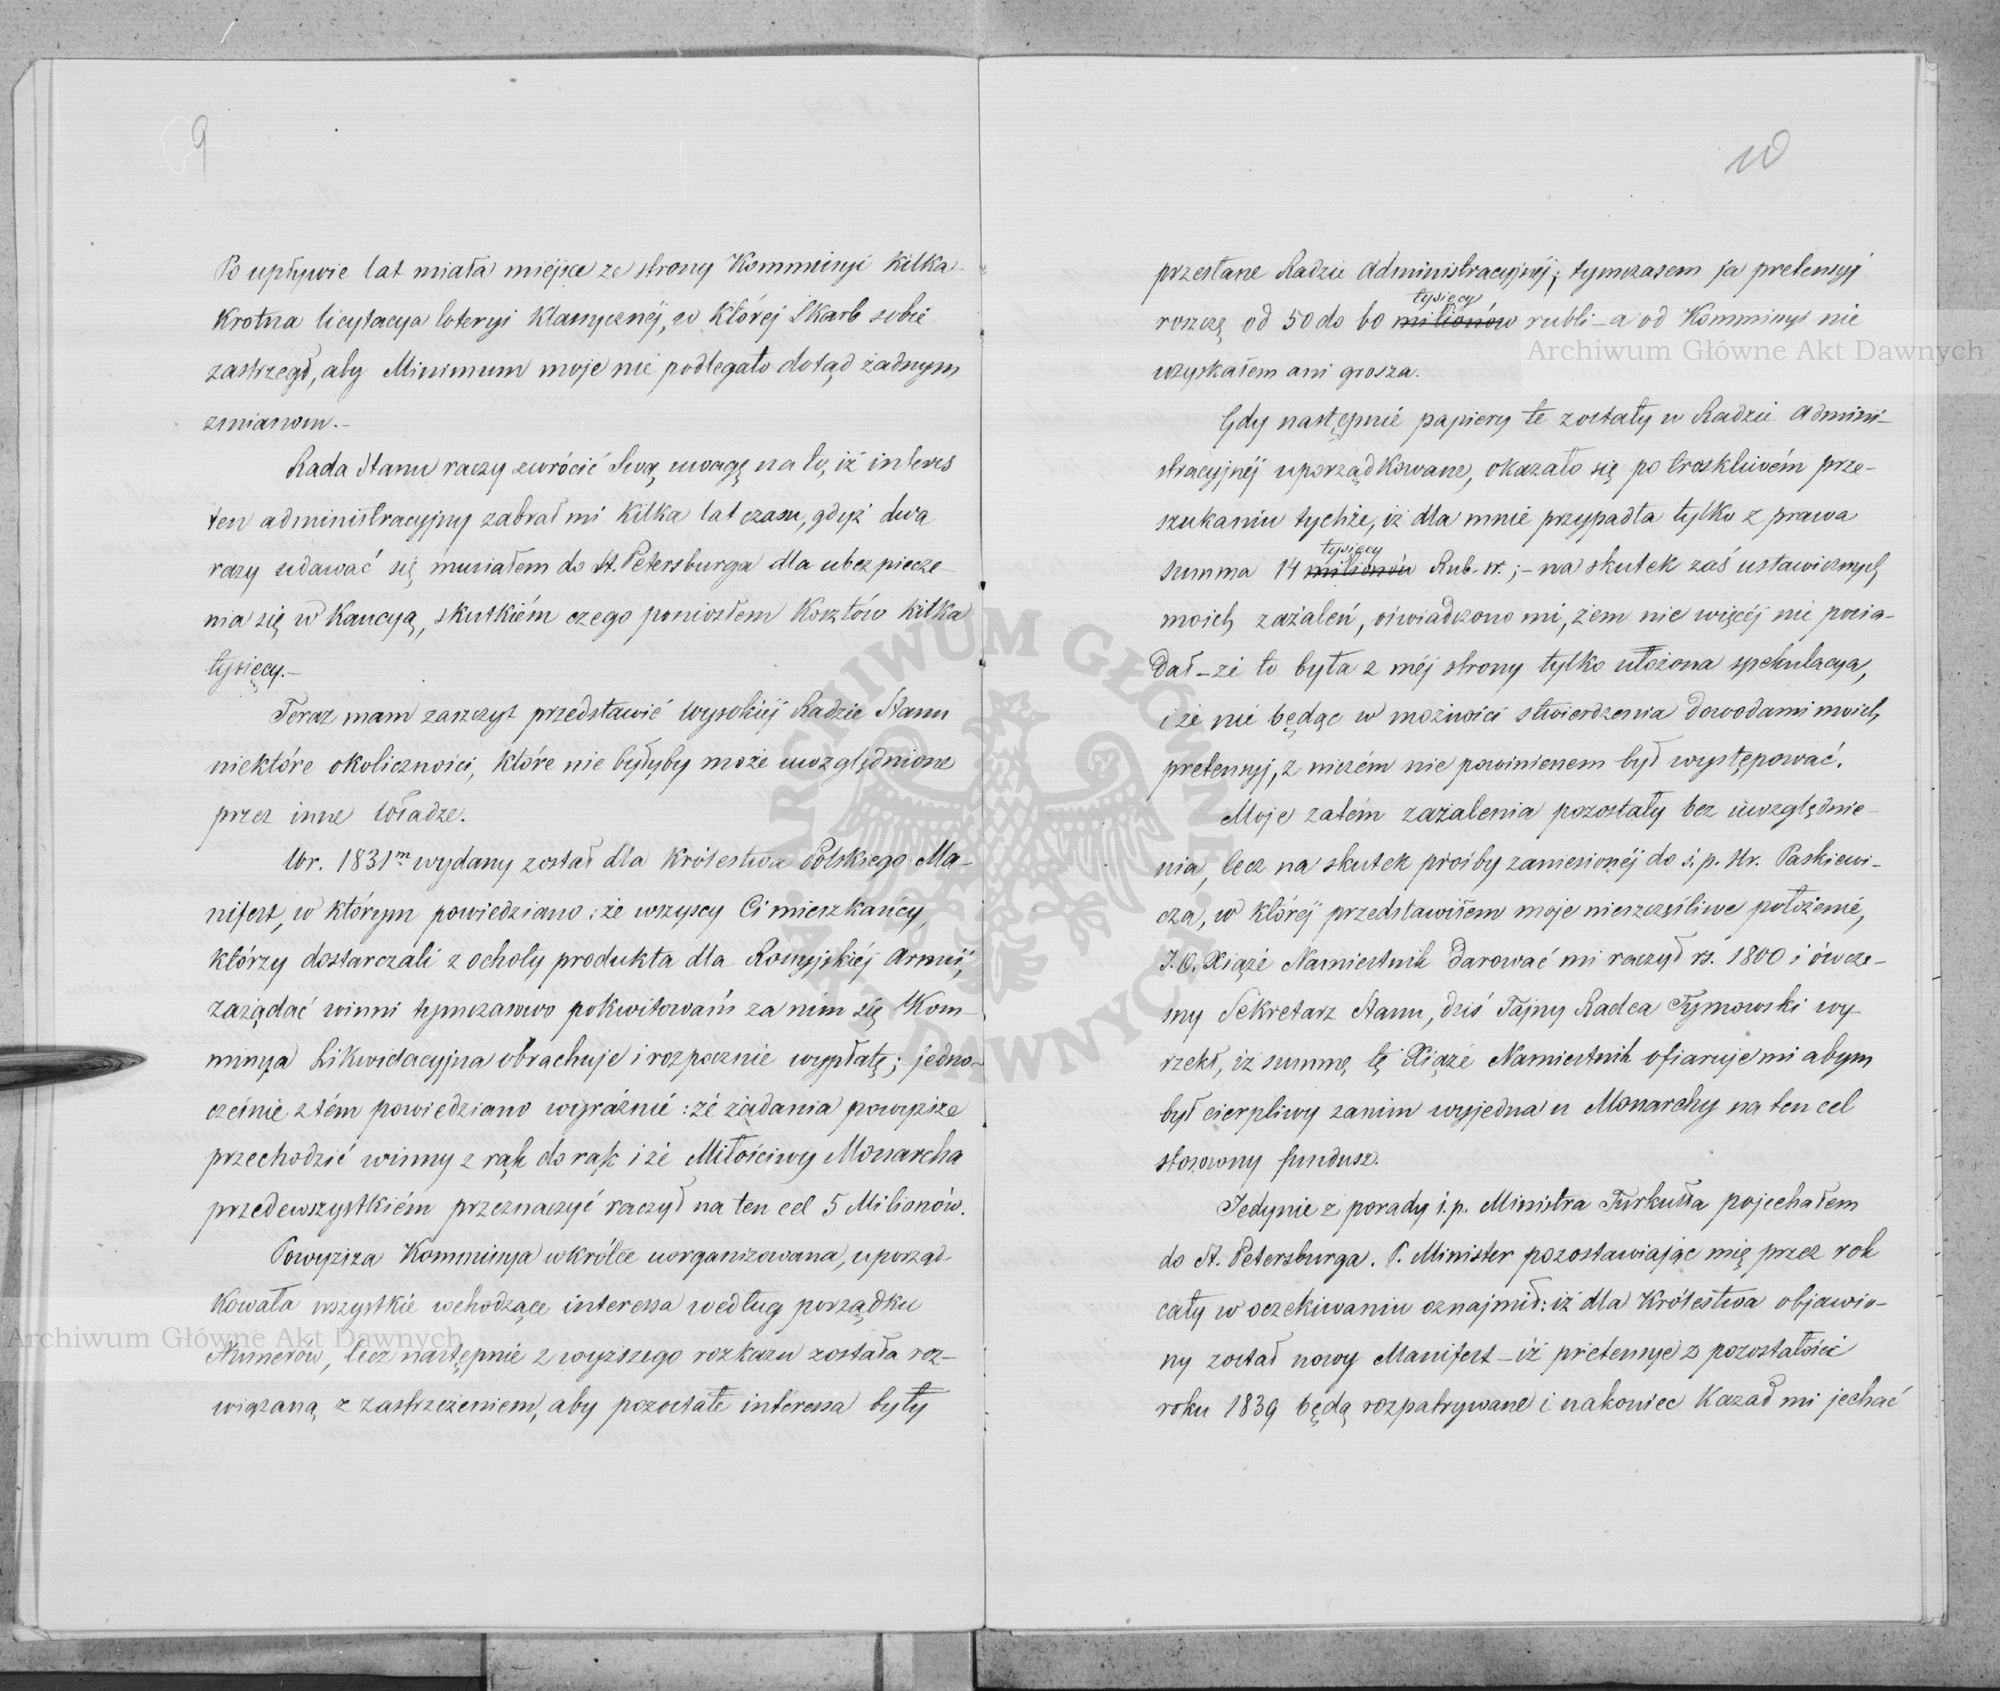 9
Po upływie lat miała miéjsce ze strony Kommissyi kilka-
krotna licytacya loteryi klassycznéj, w któréj Skarb sobie
zastrzegł, aby Minimum moje nie podlegało dotąd żadnym
zmianom.-
Rada Stanu raczy zwrócić Swą uwagę na to, iż interes
ten administracyjny zabrał mi kilka lat czasu, gdyż dwa
razy udawać się musiałem do St. Petersburga dla ubezpiecze-
nia się w Kaucyą, skutkiém czego poniosłem kosztów kilka
tysięcy.-
Teraz mam zaszczyt przedstawić Wysokiéj Radzie Stanu
niektóre okoliczności, które nie byłyby może uwzględnione
przez inne Władze.
W r. 1831m wydany został dla Królestwa Polskiego Ma-
nifest, w którym powiedziano: że wszyscy Ci mieszkańcy,
którzy dostarczali z ochoty produkta dla Rossyjskiéj Armii,
zażądać winni tymczasowo pokwitowań zanim się Kom-
missya Likwidacyjna obrachuje i rozpocznie wypłatę; jedno-
cześnie z tém powiedziano wyraźnie: że żądania powyższe
przechodzić winny z rąk do rąk i że Miłościwy Monarcha
przedewszystkiém przeznaczyć raczył na ten cel 5 Milionów.
Powyższa Kommissya wkrótce uorganizowana, uporząd-
kowała wszystkie wchodzące interessa według porządku
Numerów, lecz następnie z wyższego rozkazu została roz-
wiązaną z zastrzeżeniem, aby pozostałe interessa były
10
przesłane Radzie Administracyjnéj; tymczasem ja pretensyj
tysięcy
roszczę od 50 do 60 milionów rubli - a od Kommissyi nie
uzyskałem ani grosza.
Gdy następnie papiery te zostały w Radzie Admini-
stracyjnéj uporządkowane, okazało się po troskliwém prze-
szukaniu tychże, iż dla mnie przypadła tylko z prawa
tysięcy
summa 14 milionów Rub. sr.; - na skutek zaś ustawicznych
moich zażaleń, oświadczono mi, żem nie więcéj nie posia-
dał - że to była z méj strony tylko ułożona spekulacya,
i że nie będąc w możności stwierdzenia dowodami moich
pretensyj, z niczém nie powinienem był występować.
Moje zatém zażalenia pozostały bez uwzględnie-
nia, lecz na skutek prośby zaniesionéj do ś. p. Hr. Paskiewi-
cza, w któréj przedstawiłem moje nieszczęśliwe położenie,
J. O. Xiąże Namiestnik darować mi raczył rs. 1800 i ówcze-
sny Sekretarz Stanu, dziś Tajny Radca Tymowski wy-
rzekł, iż summę tę Xiąże Namiestnik ofiaruje mi abym
był cierpliwy zanim wyjedna u Monarchy na ten cel
stosowny fundusz.
Jedynie z porady ś. p. Ministra Turkułła pojechałem
do St. Petersburga. P. Minister pozostawiając mię przez rok
cały w oczekiwaniu oznajmił: iż dla Królestwa objawio-
ny został nowy Manifest - iż pretensye z pozostałości
roku 1839 będą rozpatrywane i nakoniec kazał mi jechać
Archiwum Główne Akt Dawnych
Archiwum Główne Akt Dawnych
ARCHIWUM GŁÓWNE AKT DAWNYCH